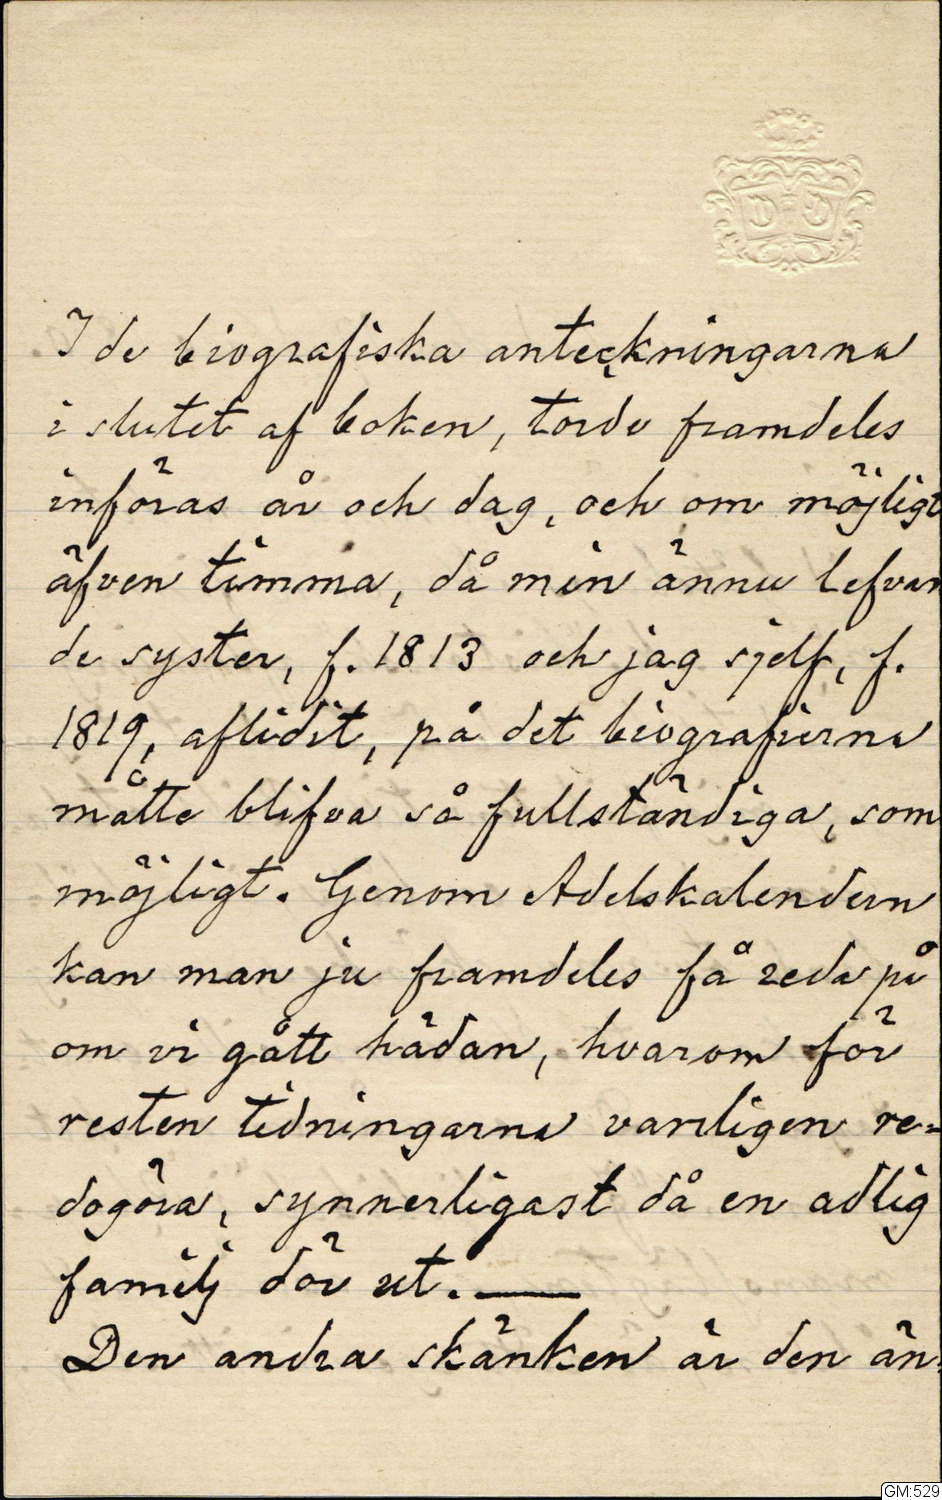 I de biografiska anteckningarna
i slutet af boken, torde framdeles
införas år och dag, och om möjligt
äfven timma, då min ännu lefvan
de syster, f. 1813 och jag sjelf, f.
1819, aflidit, på det biografierna
måtte blifva så fullständiga, som
möjligt. Genom Adelskalendern
kan man ju framdeles få reda på
om vi gått hädan, hvarom för
resten tidningarna vanligen re=
dogöra, synnerligast då en adlig
familj dör ut. —
Den andra skänken är den än
GM:529